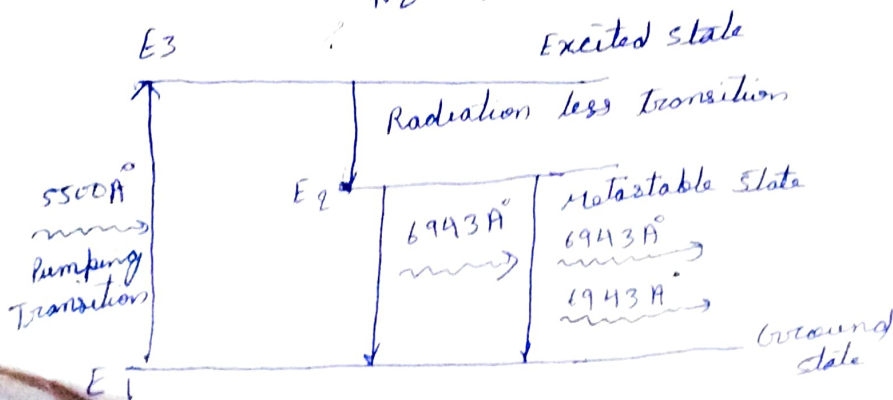 E3
Excited state
Radiation less transition
5500A°
Pumping
Transition
E2
Metastable state
6943A°
6943A°
6943A°
Ground
state
E1